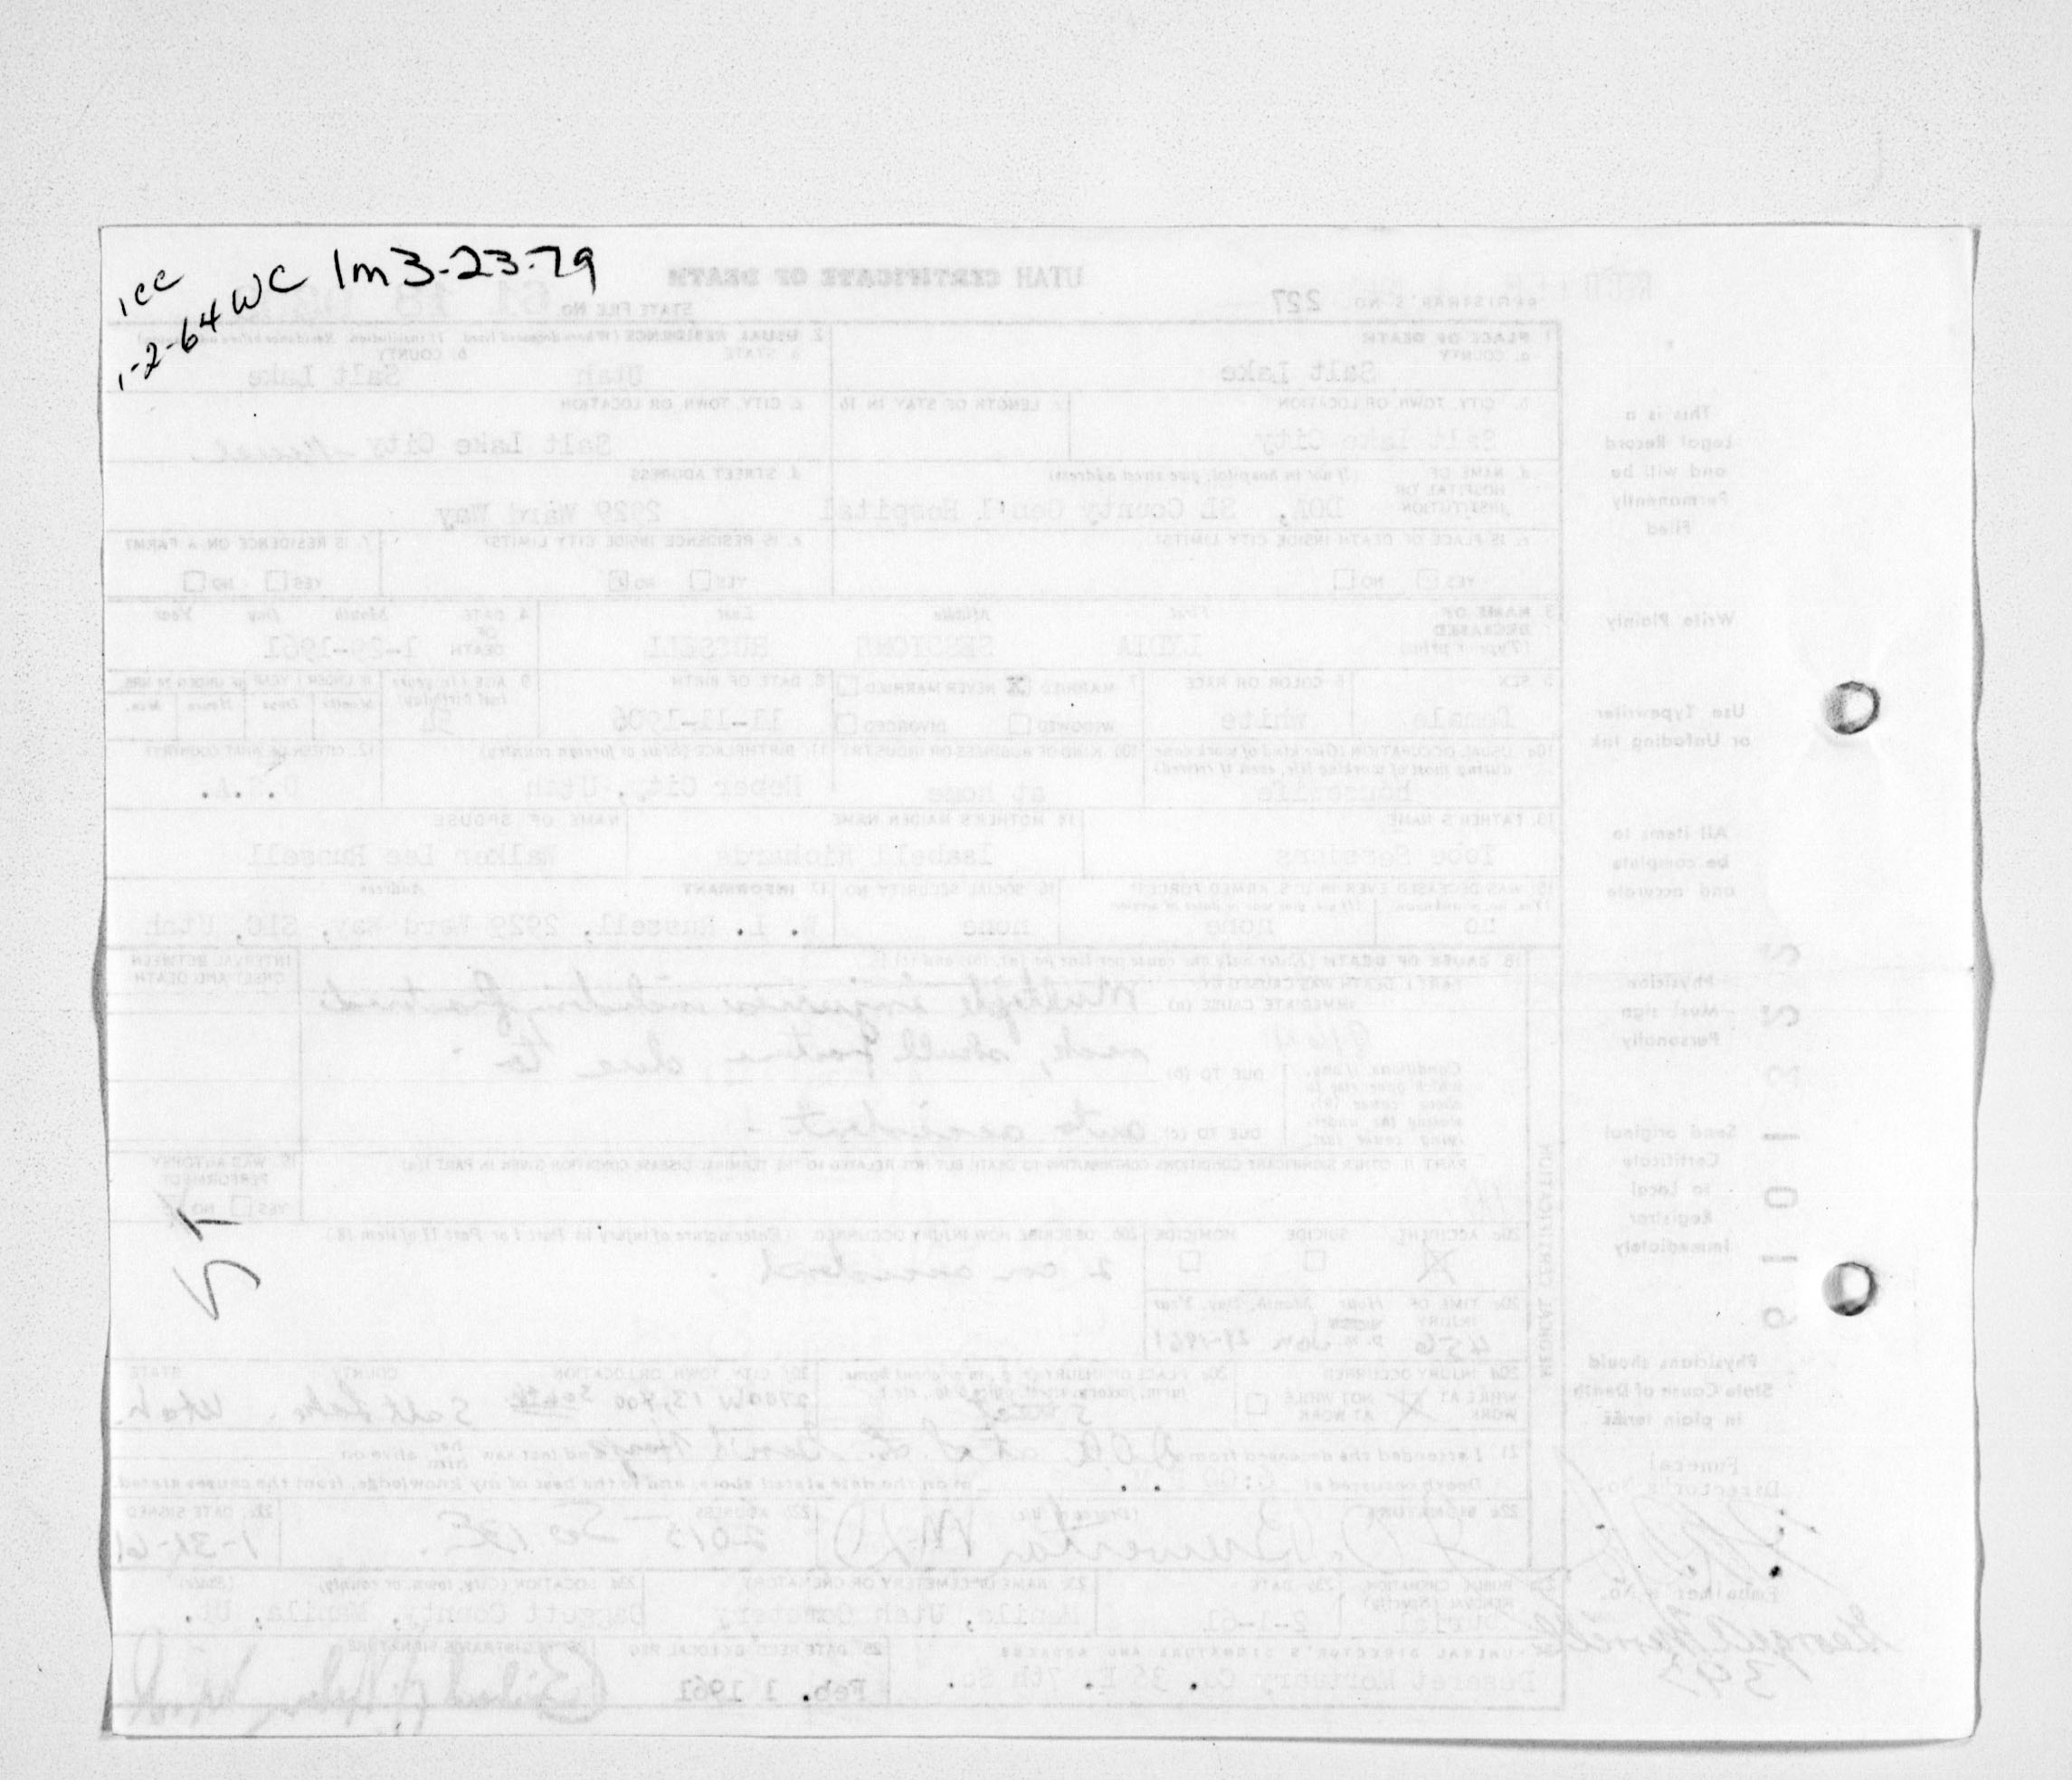 1cc
1-2-64 WC 1m 3-23-79
UTAH CERTIFICATE OF DEATH
REGISTRAR'S NO. 227
STATE FILE NO. 61 18
1. PLACE OF DEATH
a. COUNTY
Salt Lake
2. USUAL RESIDENCE (Where deceased lived. If institution: Residence before
a. STATE
Utah
b. COUNTY
Salt Lake
b. CITY, TOWN, OR LOCATION
Salt Lake City
c. LENGTH OF STAY IN 1b
c. CITY, TOWN, OR LOCATION
Salt Lake City
d. NAME OF HOSPITAL OR INSTITUTION
(If not in hospital, give street address)
DOA, SL County Gen'l Hospital
d. STREET ADDRESS
2929 Ward Way
e. IS PLACE OF DEATH INSIDE CITY LIMITS?
YES NO
e. IS RESIDENCE INSIDE CITY LIMITS?
YES NO
f. IS RESIDENCE ON A FARM?
YES NO
3. NAME OF DECEASED
(Type or print)
First Middle Last
LYDIA SESSIONS RUSSELL
4. DATE OF DEATH
Month Day Year
1-29-1961
5. SEX
female
6. COLOR OR RACE
white
7. MARRIED NEVER MARRIED
WIDOWED DIVORCED
8. DATE OF BIRTH
11-11-1906
9. AGE (In years last birthday)
54
IF UNDER 1 YEAR IF UNDER 24 HRS.
Months Days Hours Min.
10a. USUAL OCCUPATION (Give kind of work done during most of working life, even if retired)
housewife
10b. KIND OF BUSINESS OR INDUSTRY
at home
11. BIRTHPLACE (State or foreign country)
Heber City, Utah
12. CITIZEN OF WHAT COUNTRY?
U.S.A.
13. FATHER'S NAME
Tobe Sessions
14. MOTHER'S MAIDEN NAME
Isabell Richards
NAME OF SPOUSE
Walker Lee Russell
15. WAS DECEASED EVER IN U.S. ARMED FORCES?
(Yes, no, or unknown) (If yes, give war or dates of service)
no none
16. SOCIAL SECURITY NO.
none
17. INFORMANT Address
W. L. Russell, 2929 Ward Way, SLC, Utah
18. CAUSE OF DEATH (Enter only one cause per line for (a), (b), and (c).)
PART I. DEATH WAS CAUSED BY:
IMMEDIATE CAUSE (a)
Multiple injuries including fractured
neck, skull fracture due to
Conditions, if any, which gave rise to above cause (a), stating the underlying cause last.
DUE TO (b)
DUE TO (c) auto accident
INTERVAL BETWEEN ONSET AND DEATH
PART II. OTHER SIGNIFICANT CONDITIONS CONTRIBUTING TO DEATH BUT NOT RELATED TO THE TERMINAL DISEASE CONDITION GIVEN IN PART I(a)
19. WAS AUTOPSY PERFORMED?
YES NO
20a. ACCIDENT SUICIDE HOMICIDE
20b. DESCRIBE HOW INJURY OCCURRED. (Enter nature of injury in Part I or Part II of item 18.)
2 car accident
20c. TIME OF INJURY Hour Month, Day, Year
456 p.m. Jan 29-1961
20d. INJURY OCCURRED
WHILE AT WORK NOT WHILE AT WORK
20e. PLACE OF INJURY (e.g., in or about home, farm, factory, street, office bldg., etc.)
street
20f. CITY, TOWN, OR LOCATION COUNTY STATE
2700 W 13,400 South Salt Lake. Utah.
21. I attended the deceased from D.O.A. at S.L. Gen'l Hosp and last saw her him alive on
Death occurred at m on the date stated above; and to the best of my knowledge, from the causes stated.
22a. SIGNATURE (Degree or title)
M.D.
22b. ADDRESS
2015 So 13E.
22c. DATE SIGNED
1-31-61
23a. BURIAL, CREMATION, REMOVAL (Specify)
Burial
23b. DATE
2-1-61
23c. NAME OF CEMETERY OR CREMATORY
Manila, Utah Cemetery
23d. LOCATION (City, town, or county) (State)
Daggett County, Manila, Ut.
24. FUNERAL DIRECTOR'S SIGNATURE AND ADDRESS
Deseret Mortuary Co. 35 E. 7th So.
25. DATE REC'D BY LOCAL REG.
Feb. 1 1961
26. REGISTRAR'S SIGNATURE
MEDICAL CERTIFICATION
This is a
Legal Record
and will be
Permanently
Filed
Write Plainly
Use Typewriter
or Unfading Ink
All items to
be complete
and accurate
Physician
Must sign
Personally
Send original
Certificate
to Local
Registrar
Immediately
Physicians should
State Cause of Death
in plain terms
Funeral
Director's No.
Embalmer's No.
393